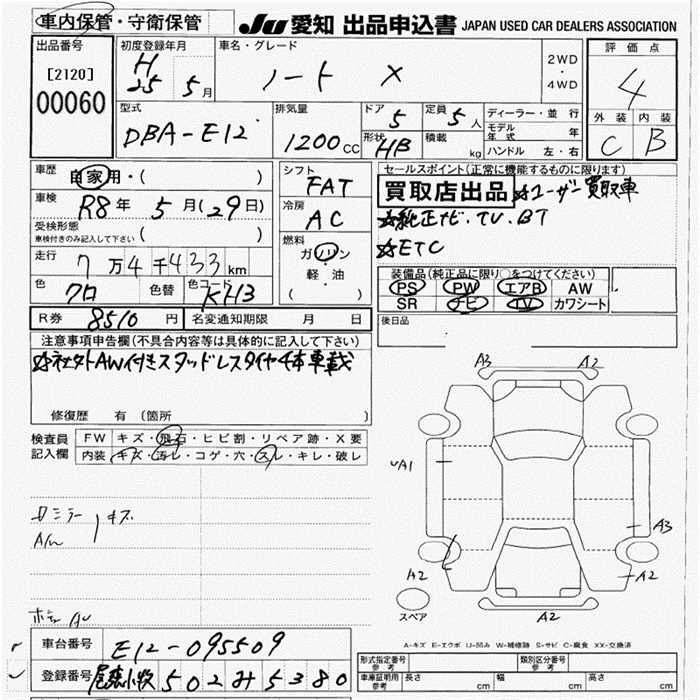 車内保管・守衛保管 JU 愛知 出品申込書 JAPAN USED CAR DEALERS ASSOCIATION
出品番号 [2120] 00060
初度登録年月 H 25 5月
車名・グレード ノート X
2WD・4WD
評価点 4
外装 C 内装 B
型式 DBA-E12
排気量 1200cc
ドア 5 定員 5人
形状 HB 積載 kg
ディーラー・並行
モデル年式 年
ハンドル 左・右
車歴 自家用・( )
車検 R8年 5月(29日)
受検形態 ( )
車検付きのみ記入して下さい
走行 7万4千433km
色 クロ 色替 色コード KH3
シフト FAT
冷房 AC
燃料 ガソリン・軽・油 ( )
セールスポイント(正常に機能するものに限ります)
買取店出品 ☆ユーザー買取車
☆純正ナビ.TV.BT
☆ETC
装備品(純正品に限り○をつけてください)
PS PW エアB AW
SR ナビ TV カワシート
R券 8510円 名変通知期限 月 日
後日品
注意事項申告欄(不具合内容等は具体的に記入して下さい)
☆社外AW付きスタッドレスタイヤ4本車載
修復歴 有 (箇所 )
検査員記入欄
FW キズ・飛石・ヒビ割・リペア跡・X要
内装 キズ・汚レ・コゲ・穴・スレ・キレ・破レ
A3 A2
A1
A3
A2 A2
スペア A2
A-キズ E-エクボ U-凹み W-補修跡 S-サビ C-腐食 XX-交換済
車台番号 E12-095509
登録番号 尾張小牧 502 み 5380
形式指定番号 参考 類別区分番号 参考
車庫証明用 参考 長さ cm 幅 cm 高さ cm